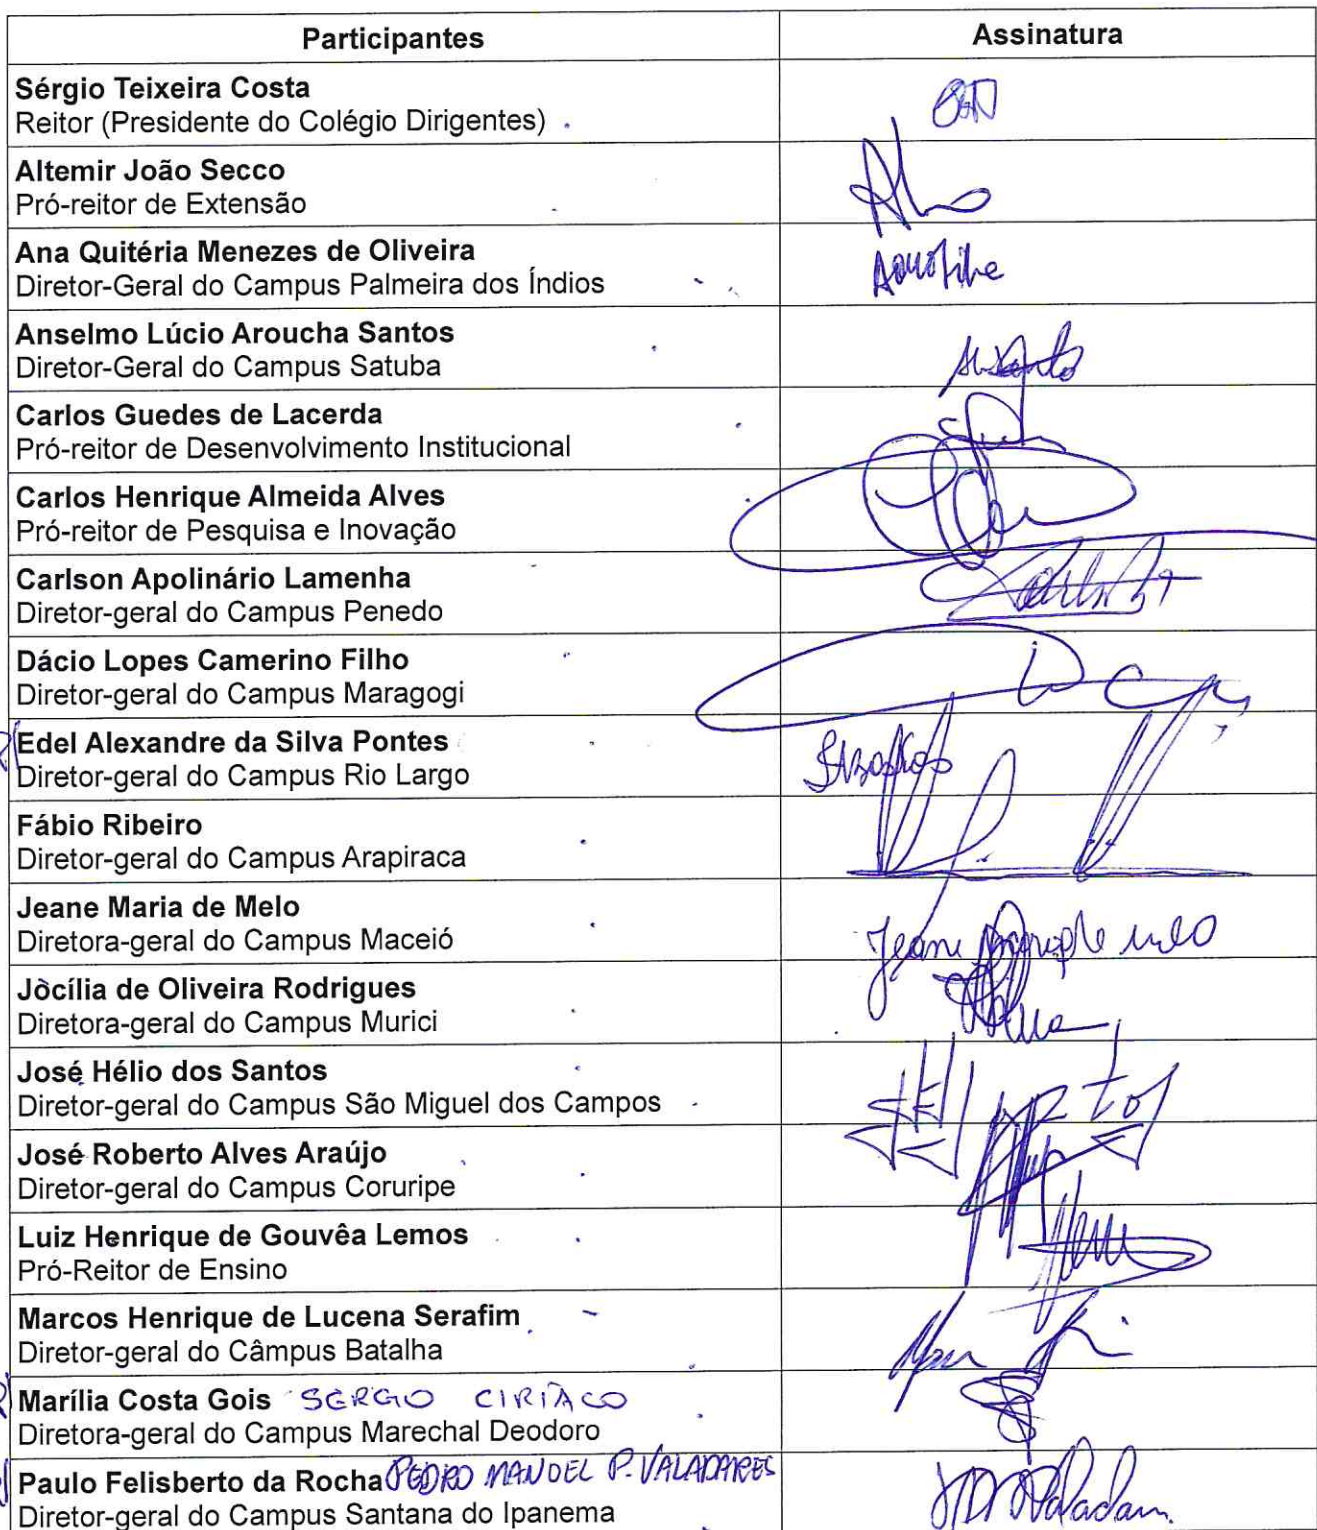 Participantes Assinatura
Sérgio Teixeira Costa
Reitor (Presidente do Colégio Dirigentes)
Altemir João Secco
Pró-reitor de Extensão
Ana Quitéria Menezes de Oliveira
Diretor-Geral do Campus Palmeira dos Índios
Anselmo Lúcio Aroucha Santos
Diretor-Geral do Campus Satuba
Carlos Guedes de Lacerda
Pró-reitor de Desenvolvimento Institucional
Carlos Henrique Almeida Alves
Pró-reitor de Pesquisa e Inovação
Carlson Apolinário Lamenha
Diretor-geral do Campus Penedo
Dácio Lopes Camerino Filho
Diretor-geral do Campus Maragogi
Edel Alexandre da Silva Pontes
Diretor-geral do Campus Rio Largo
Fábio Ribeiro
Diretor-geral do Campus Arapiraca
Jeane Maria de Melo
Diretora-geral do Campus Maceió
Jeane Melo
Jòcília de Oliveira Rodrigues
Diretora-geral do Campus Murici
José Hélio dos Santos
Diretor-geral do Campus São Miguel dos Campos
José Roberto Alves Araújo
Diretor-geral do Campus Coruripe
Luiz Henrique de Gouvêa Lemos
Pró-Reitor de Ensino
Marcos Henrique de Lucena Serafim
Diretor-geral do Câmpus Batalha
Marília Costa Gois SERGIO CIRÍACO
Diretora-geral do Campus Marechal Deodoro
Paulo Felisberto da Rocha PEDRO MANOEL P. VALADARES
Diretor-geral do Campus Santana do Ipanema